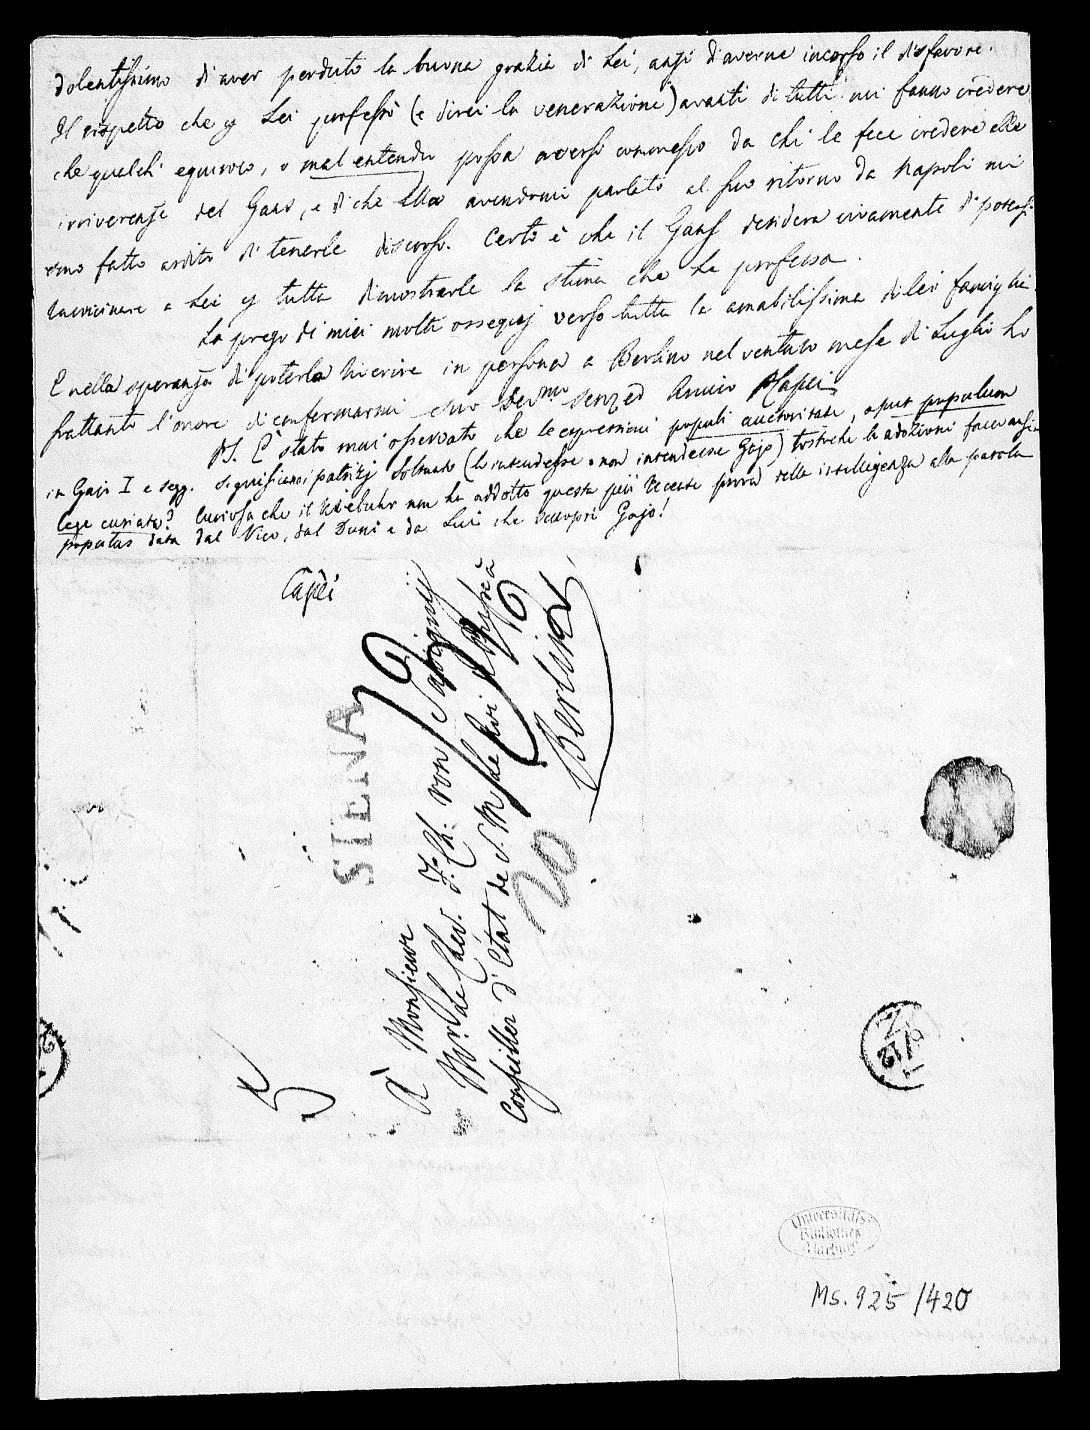 dolentissimo di aver perduto la buona grazia di Lei, anzi d'averne incorso il disfavore.
Il rispetto che p Lei professò (e direi la venerazione) avanti di tutti mi fanno credere
che qualche equivoco, o mal entendu possa avervi commesso da chi le fece credere alle
irriverenze del Gans, e di che Ella avendomi parlato al suo ritorno da Napoli mi
sono fatto ardito di tenerle discorso. Certo è che il Gans desidera vivamente di potersi
ravvicinare a Lei p tutta dimostrarle la stima che Le professa.
La prego di miei molti ossequj verso tutta la amabilissima di lei famiglia.
E nella speranza di poterla riverire in persona a Berlino nel venturo mese di Luglio ho
frattanto l'onore di confermarmi suo dev.mo serv ed Amico Capei
PS. È stato mai osservato che le espressioni populi auctoritate, apud populum
in Gajo I e segg. significano i patrizj soltanto (lo intendesse o non intendesse Gajo) tostochè le adozioni facevansi
lege curiata? Curiosa che il Niebuhr non ha addotto questa più recente prova della intelligenza alla parola
populus data dal Vico, dal Duni e da Lui che scoprì Gajo!
Capei
SIENA
À Monsieur
Mr. le Chev. F. Ch. von Savigny
Conseiller d'État de S. M. le Roi de Prusse à
Berlino
20
Universitäts
Bibliothek
Marburg
Ms. 925/420